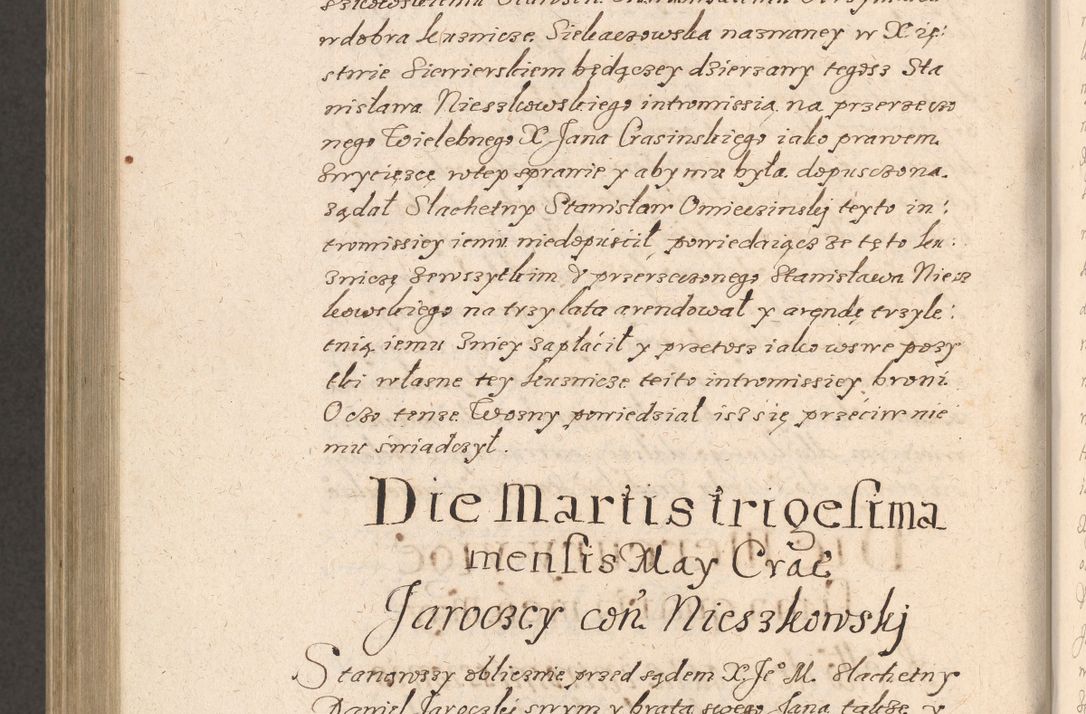 w dobra kusnicze Siekaczowska nazwaney w X ię:
stwie Siewierskiem będączey dzierzawy tegosz Sta
nisława Nieszkowskiego intromissią na przerzeczo
nego Wielebnego X. Jana Crasinskiego iako prawem
zwycięzcę wtey sprawie y aby mu była dopusczona.
ządał Slachetny Stanisław Omiecinskj teyto in:
tromissiey iemu niedopuscił, powiedaiącz ze tęto ku:
znicę zewszytkim v przerzeczonego Stanisława Niesz
kowskiego na trzy lata arendował y arendę trzyle:
tnią iemu zniey zapłacił y przetosz iako wswe pozy
tki własne tey kusnicze teito intromissiey broni.
O czo tenze Wozny powiedział isz się przeciw nie
mu swiadczył.
Die Martis trigesima
mensis May Crac
Jaroczcy con. Nieszkowskj
Stanąwszy oblicznie przed sądem X. Je° M. Slachetny
Daniel Jaroczkj swym y brata swego Jana także y